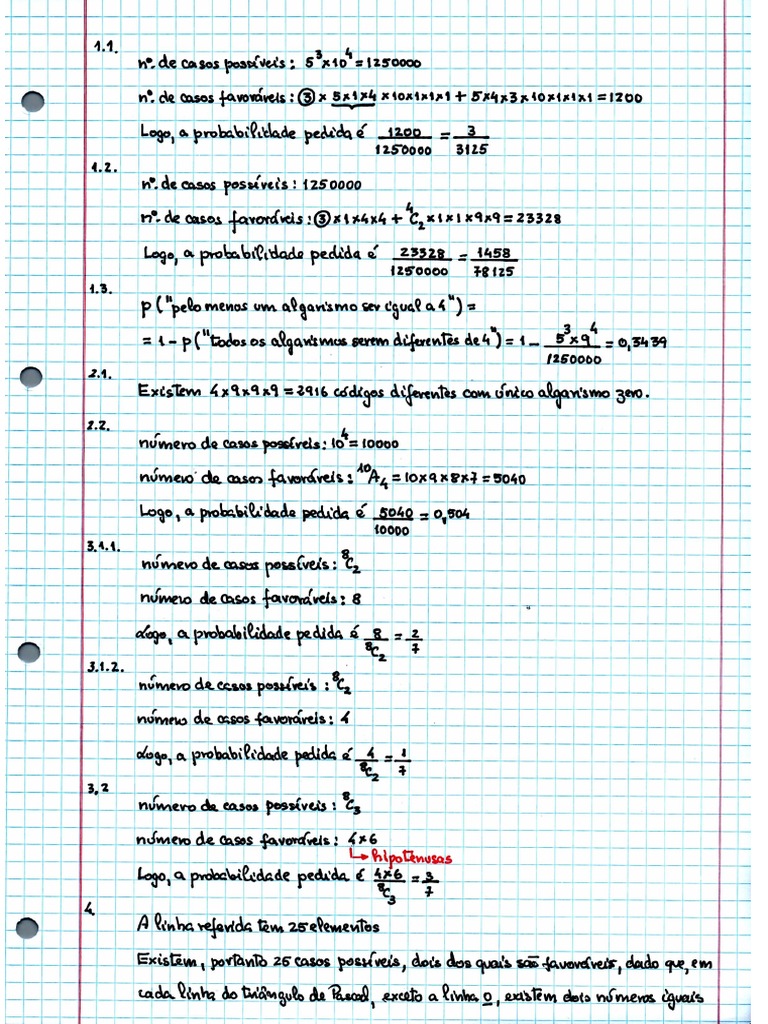 1.1.
nº. de casos possíveis: 5³×10⁴=1250000
nº. de casos favoráveis: ③ × 5×1×4 ×10×1×1×1 + 5×4×3×10×1×1×1=1200
Logo, a probabilidade pedida é 1200/1250000 = 3/3125
1.2.
nº. de casos possíveis: 1250000
nº. de casos favoráveis: ③×1×4×4 + ⁴C₂×1×1×9×9=23328
Logo, a probabilidade pedida é 23328/1250000 = 1458/78125
1.3.
p("pelo menos um algarismo ser igual a 4")=
= 1-p("todos os algarismos serem diferentes de 4")= 1 - 5³×9⁴/1250000 = 0,3439
2.1.
Existem 4×9×9×9=2916 códigos diferentes com único algarismo zero.
2.2.
número de casos possíveis: 10⁴=10000
número de casos favoráveis: ¹⁰A₄=10×9×8×7=5040
Logo, a probabilidade pedida é 5040/10000 = 0,504
3.1.1.
número de casos possíveis: ⁸C₂
número de casos favoráveis: 8
Logo, a probabilidade pedida é 8/⁸C₂ = 2/7
3.1.2.
número de casos possíveis: ⁸C₂
número de casos favoráveis: 4
Logo, a probabilidade pedida é 4/⁸C₂ = 1/7
3.2
número de casos possíveis: ⁸C₃
número de casos favoráveis: 4×6
↳ hipotenusas
Logo, a probabilidade pedida é 4×6/⁸C₃ = 3/7
4.
A linha referida tem 25 elementos
Existem, portanto 25 casos possíveis, dois dos quais são favoráveis, dado que, em
cada linha do triângulo de Pascal, exceto a linha 0, existem dois números iguais